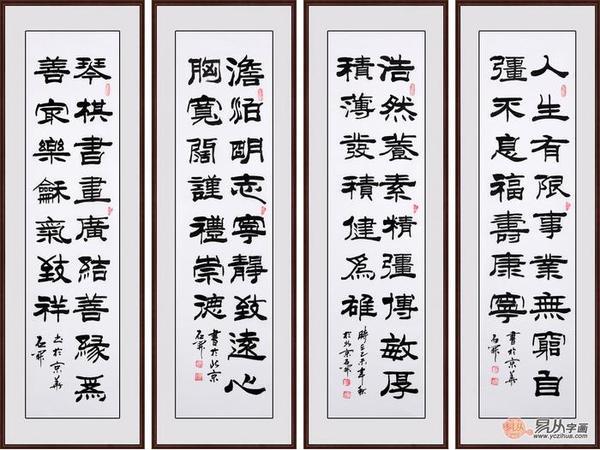 人生有限事業無窮自
彊不息福壽康寧
書於京華
石
浩然養素精彊博敏厚
積薄發積健爲雄
乙未年秋
於北京石
澹泊明志寧靜致遠心
胸寬闊謹禮崇德
書於北京
石
琴棋書畫廣結善緣爲
善冣樂龢氣致祥
書於京華
石
易从字画
www.yczihua.com